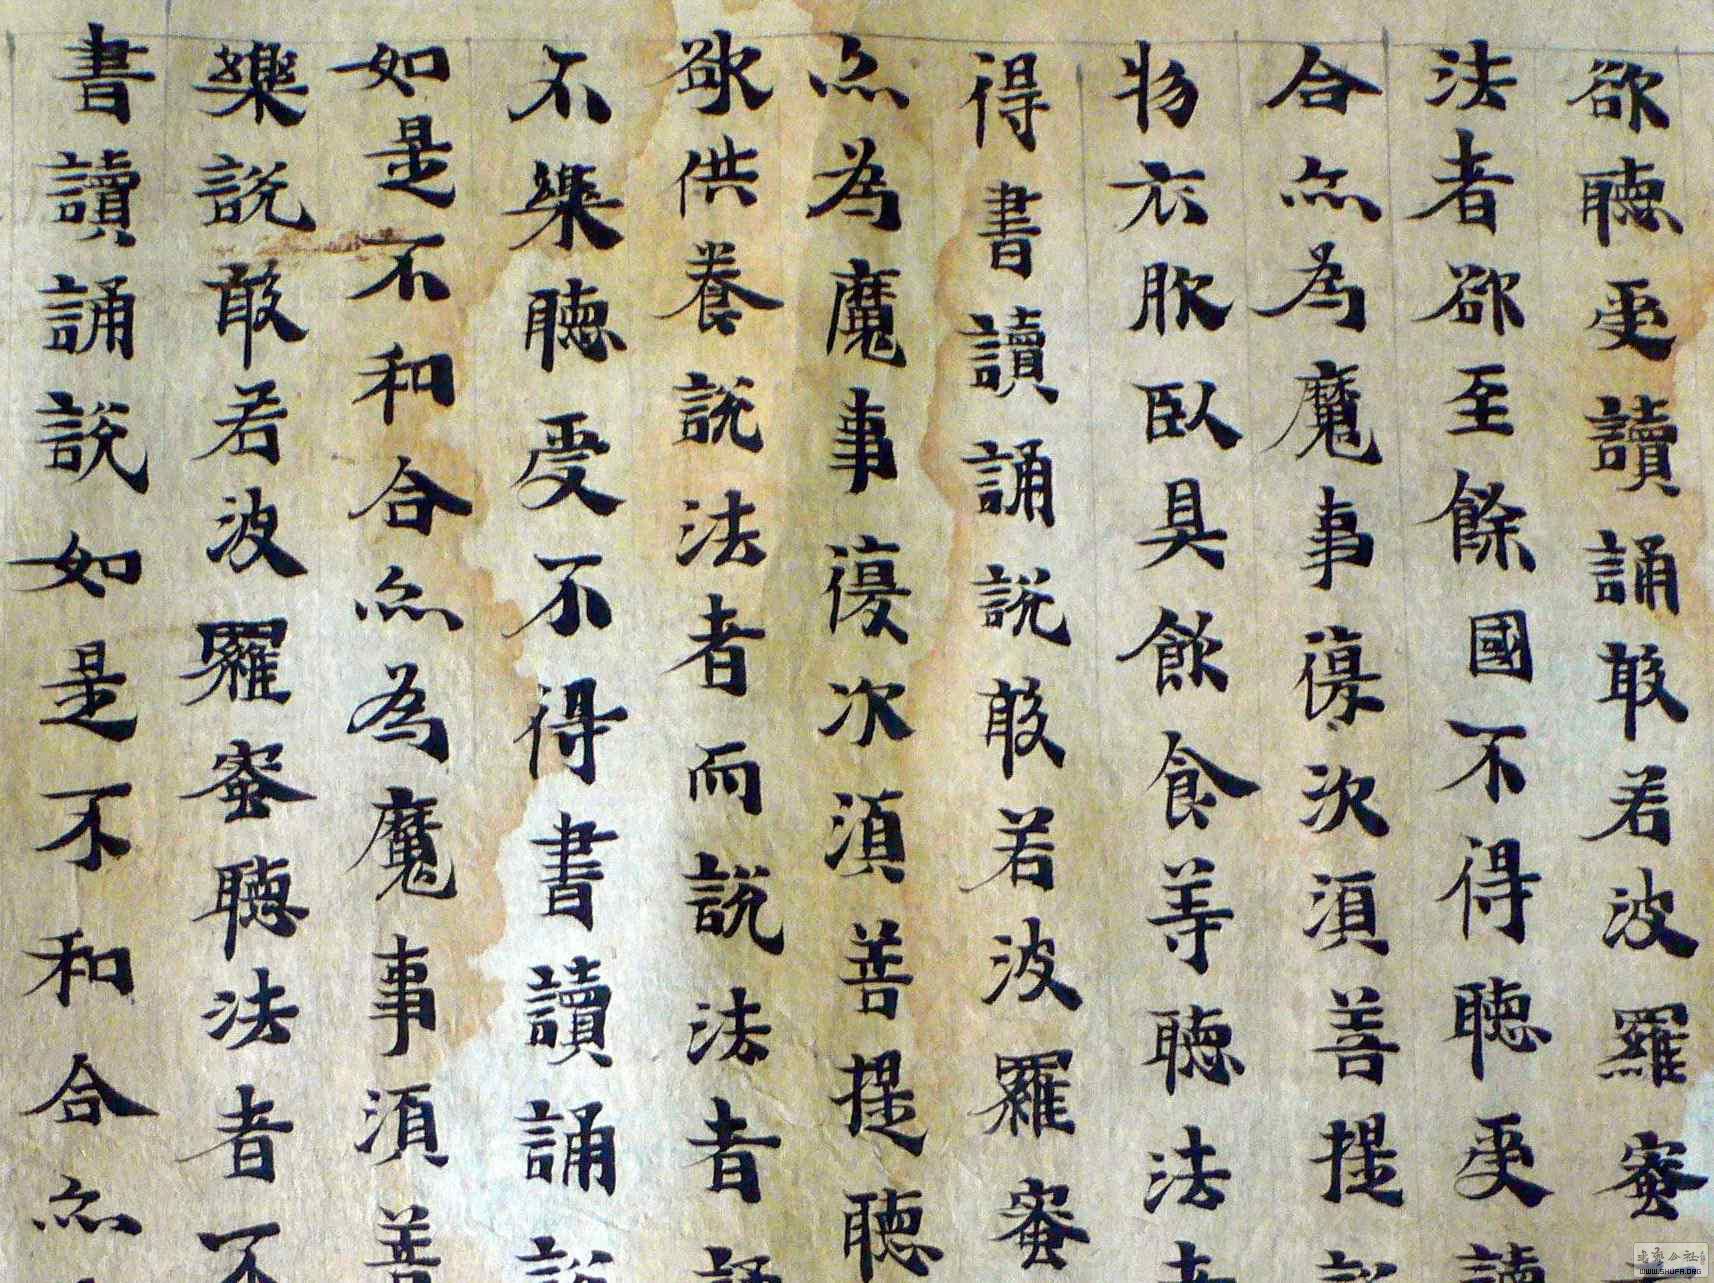 欲聽受讀誦般若波羅蜜
法者欲至餘國不得聽受讀
合亦為魔事復次須菩提說
物衣服臥具飲食等聽法者
得書讀誦說般若波羅蜜
亦為魔事復次須菩提聽
欲供養說法者而說法者
不樂聽受不得書讀誦說
如是不和合亦為魔事須菩
樂說般若波羅蜜聽法者不
書讀誦說如是不和合亦
書藝公社
WWW.SHUFA.ORG